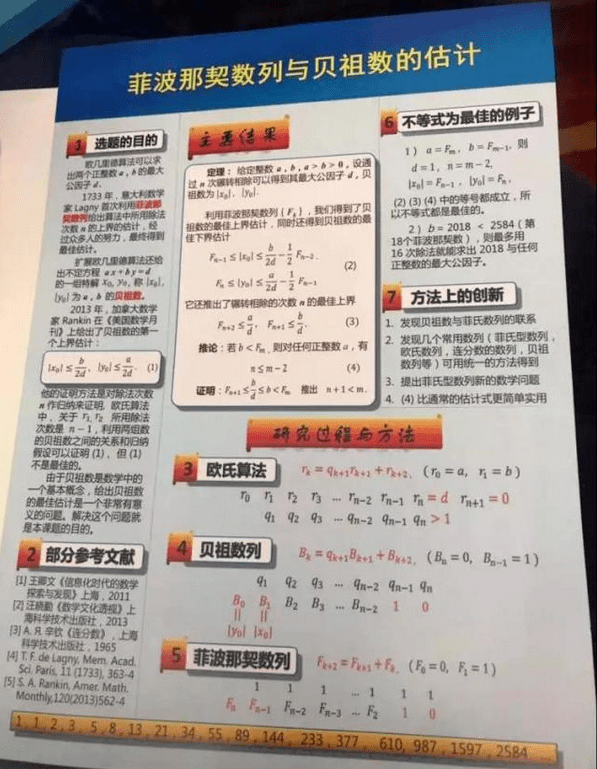 菲波那契数列与贝祖数的估计
1 选题的目的
欧几里德算法可以求
出两个正整数 a, b 的最大
公因子 d.
1733 年，意大利数学
家 Lagny 首次利用菲波那
契数列给出算法中所用除法
次数 n 的上界的估计，经
过众多人的努力，最终得到
最佳估计。
扩展欧几里德算法还给
出不定方程 ax+by=d
的一组特解 x₀, y₀, 称 |x₀|,
|y₀| 为 a, b 的贝祖数。
2013 年，加拿大数学
家 Rankin 在《美国数学月
刊》上给出了贝祖数的第一
个上界估计：
|x₀| ≤ b/2d, |y₀| ≤ a/2d. (1)
他的证明方法是对除法次数
n 作归纳来证明, 欧氏算法
中，关于 r₁, r₂ 所用除法
次数是 n−1，利用两组数
的贝祖数之间的关系和归纳
假设可以证明 (1)、但 (1)
不是最佳的。
由于贝祖数是数学中的
一个基本概念，给出贝祖数
的最佳估计是一个非常有意
义的问题。解决这个问题就
是本课题的目的。
2 部分参考文献
[1] 王卿文《信息化时代的数学
探索与发现》上海，2011
[2] 汪晓勤《数学文化透视》上
海科学技术出版社，2013
[3] А. Я. 辛钦《连分数》，上海
科学技术出版社，1965
[4] T. F. de Lagny, Mem. Acad.
Sci. Paris, 11 (1733), 363-4
[5] S. A. Rankin, Amer. Math.
Monthly,120(2013)562-4
主要结果
定理：给定整数 a, b, a > b > 0, 设通
过 n 次辗转相除可以得到其最大公因子 d, 贝
祖数为 |x₀|, |y₀|.
利用菲波那契数列 {Fₖ}，我们得到了贝
祖数的最佳上界估计，同时还得到贝祖数的最
佳下界估计
Fₙ₋₁ ≤ |x₀| ≤ b/2d − 1/2 Fₙ₋₂.
(2)
Fₙ ≤ |y₀| ≤ a/2d − 1/2 Fₙ₋₁
它还推出了辗转相除的次数 n 的最佳上界
Fₙ₊₂ ≤ a/d, Fₙ₊₁ ≤ b/d. (3)
推论：若 b < Fₘ, 则对任何正整数 a，有
n ≤ m − 2 (4)
证明：Fₙ₊₁ ≤ b/d ≤ b < Fₘ 推出 n + 1 < m.
6 不等式为最佳的例子
1 ) a = Fₘ, b = Fₘ₋₁, 则
d = 1, n = m − 2,
|x₀| = Fₙ₋₁, |y₀| = Fₙ,
(2) (3) (4) 中的等号都成立，所
以不等式都是最佳的。
2 ) b = 2018 < 2584 ( 第
18个菲波那契数 )，则最多用
16 次除法就能求出 2018 与任何
正整数的最大公因子。
7 方法上的创新
1. 发现贝祖数与菲氏数列的联系
2. 发现几个常用数列（菲氏型数列，
欧氏数列，连分数的数列，贝祖
数列等）可用统一的方法得到
3. 提出菲氏型数列新的数学问题
4. (4) 比通常的估计式更简单实用
研究过程与方法
3 欧氏算法 rₖ = qₖ₊₁rₖ₊₁ + rₖ₊₂, (r₀ = a, r₁ = b)
r₀ r₁ r₂ r₃ ... rₙ₋₂ rₙ₋₁ rₙ = d rₙ₊₁ = 0
q₁ q₂ q₃ ... qₙ₋₂ qₙ₋₁ qₙ > 1
4 贝祖数列 Bₖ = qₖ₊₁Bₖ₊₁ + Bₖ₊₂, (Bₙ = 0, Bₙ₋₁ = 1)
q₁ q₂ q₃ ... qₙ₋₂ qₙ₋₁ qₙ
B₀ B₁ B₂ B₃ ... Bₙ₋₂ 1 0
|| ||
|y₀| |x₀|
5 菲波那契数列 Fₖ₊₂ = Fₖ₊₁ + Fₖ, (F₀ = 0, F₁ = 1)
1 1 1 ... 1 1 1
Fₙ Fₙ₋₁ Fₙ₋₂ Fₙ₋₃ ... F₂ 1 0
1, 1, 2, 3, 5, 8, 13, 21, 34, 55, 89, 144, 233, 377, 610, 987, 1597, 2584 ...